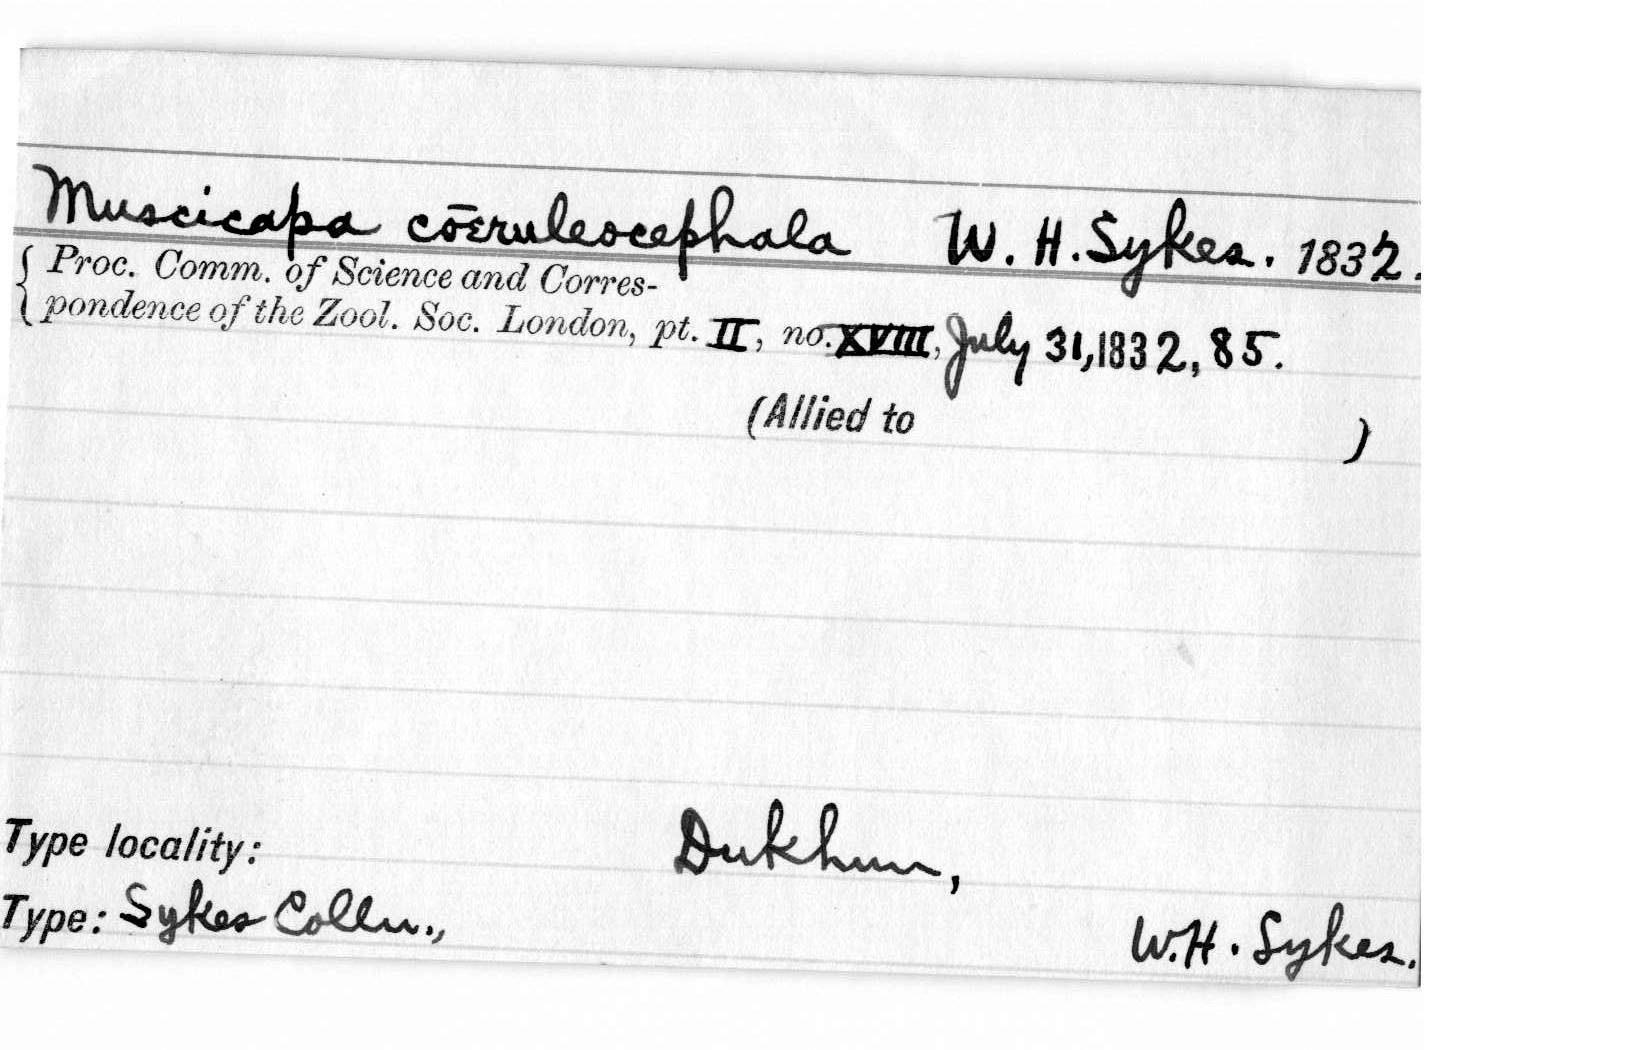 Muscicapa cōeruleocephala W. H. Sykes. 1832.
Proc. Comm. of Science and Corres-
pondence of the Zool. Soc. London, pt. II, no. XVIII, July 31, 1832, 85.
(Allied to )
Type locality: Dukhun,
Type: Sykes Colln., W.H. Sykes.